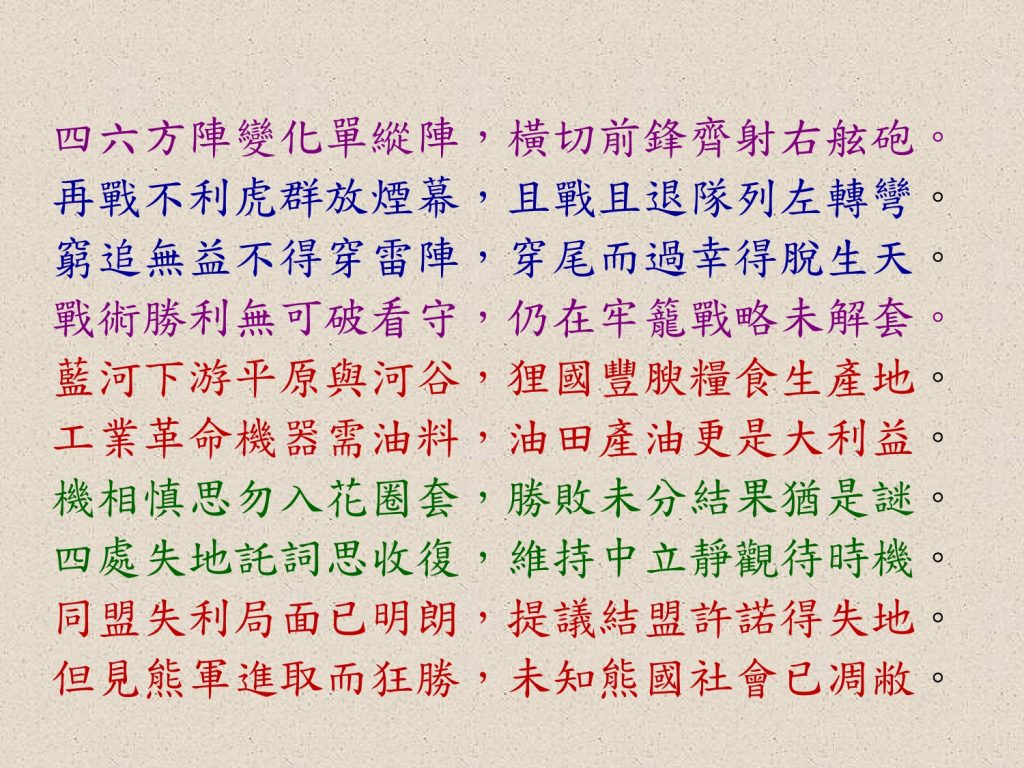 四六方陣變化單縱陣，橫切前鋒齊射右舷砲。
再戰不利虎群放煙幕，且戰且退隊列左轉彎。
窮追無益不得穿雷陣，穿尾而過幸得脫生天。
戰術勝利無可破看守，仍在牢籠戰略未解套。
藍河下游平原與河谷，狸國豐腴糧食生產地。
工業革命機器需油料，油田產油更是大利益。
機相慎思勿入花圈套，勝敗未分結果猶是謎。
四處失地託詞思收復，維持中立靜觀待時機。
同盟失利局面已明朗，提議結盟許諾得失地。
但見熊軍進取而狂勝，未知熊國社會已凋敝。